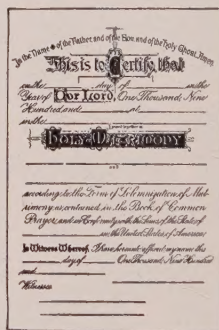 In the Name of the Father and of the Son and of the Holy Ghost, Amen
This is to Certify, that
on the day of in the
Year of Our Lord, One Thousand, Nine
Hundred and at
in the
were joined together in
Holy Matrimony
and
according to the Form of Solemnization of Mat-
rimony as contained in the Book of Common
Prayer, and in Conformity with the Laws of the State of
in the United States of America.
In Witness Whereof, I have hereunto affixed my name this
day of One Thousand, Nine Hundred
and
Witnesses